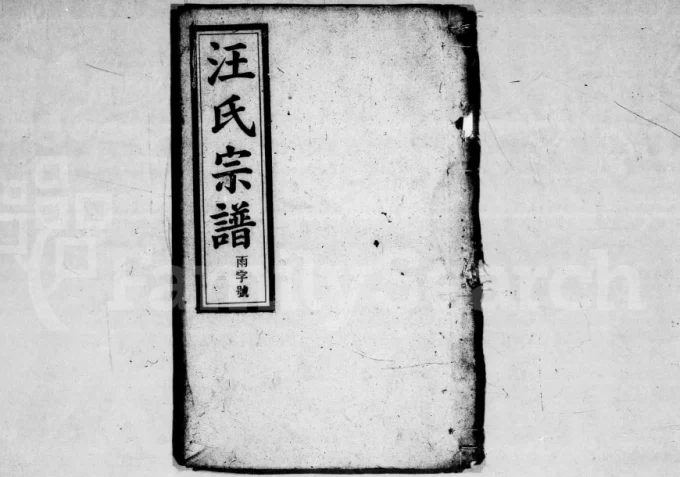 汪氏宗譜
雨字號
FamilySearch